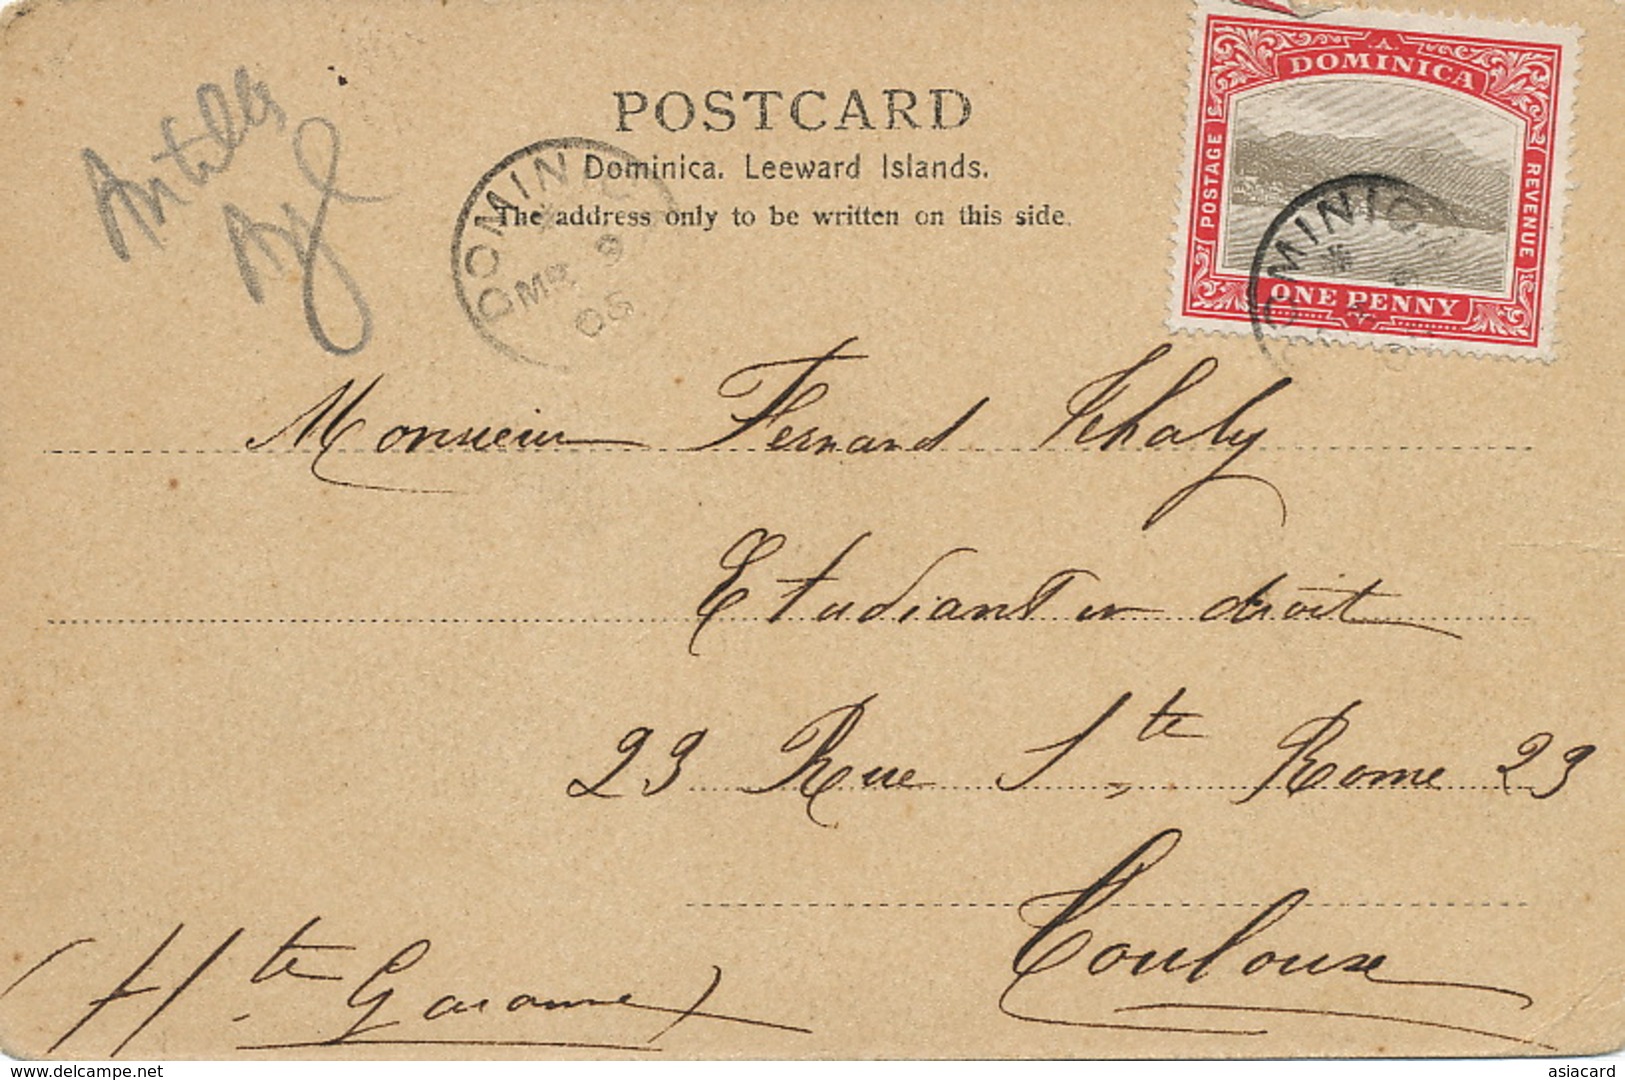 POSTCARD
Dominica. Leeward Islands.
The address only to be written on this side.
A
DOMINICA
POSTAGE
REVENUE
ONE PENNY
DOMINICA
MR 9
05
DOMINIC
Antilles
Angl
Monsieur Fernand Thaly
Etudiant en droit
23 Rue Ste Rome 23
Toulouse
(Hte Garonne)
delcampe.net
asiacard